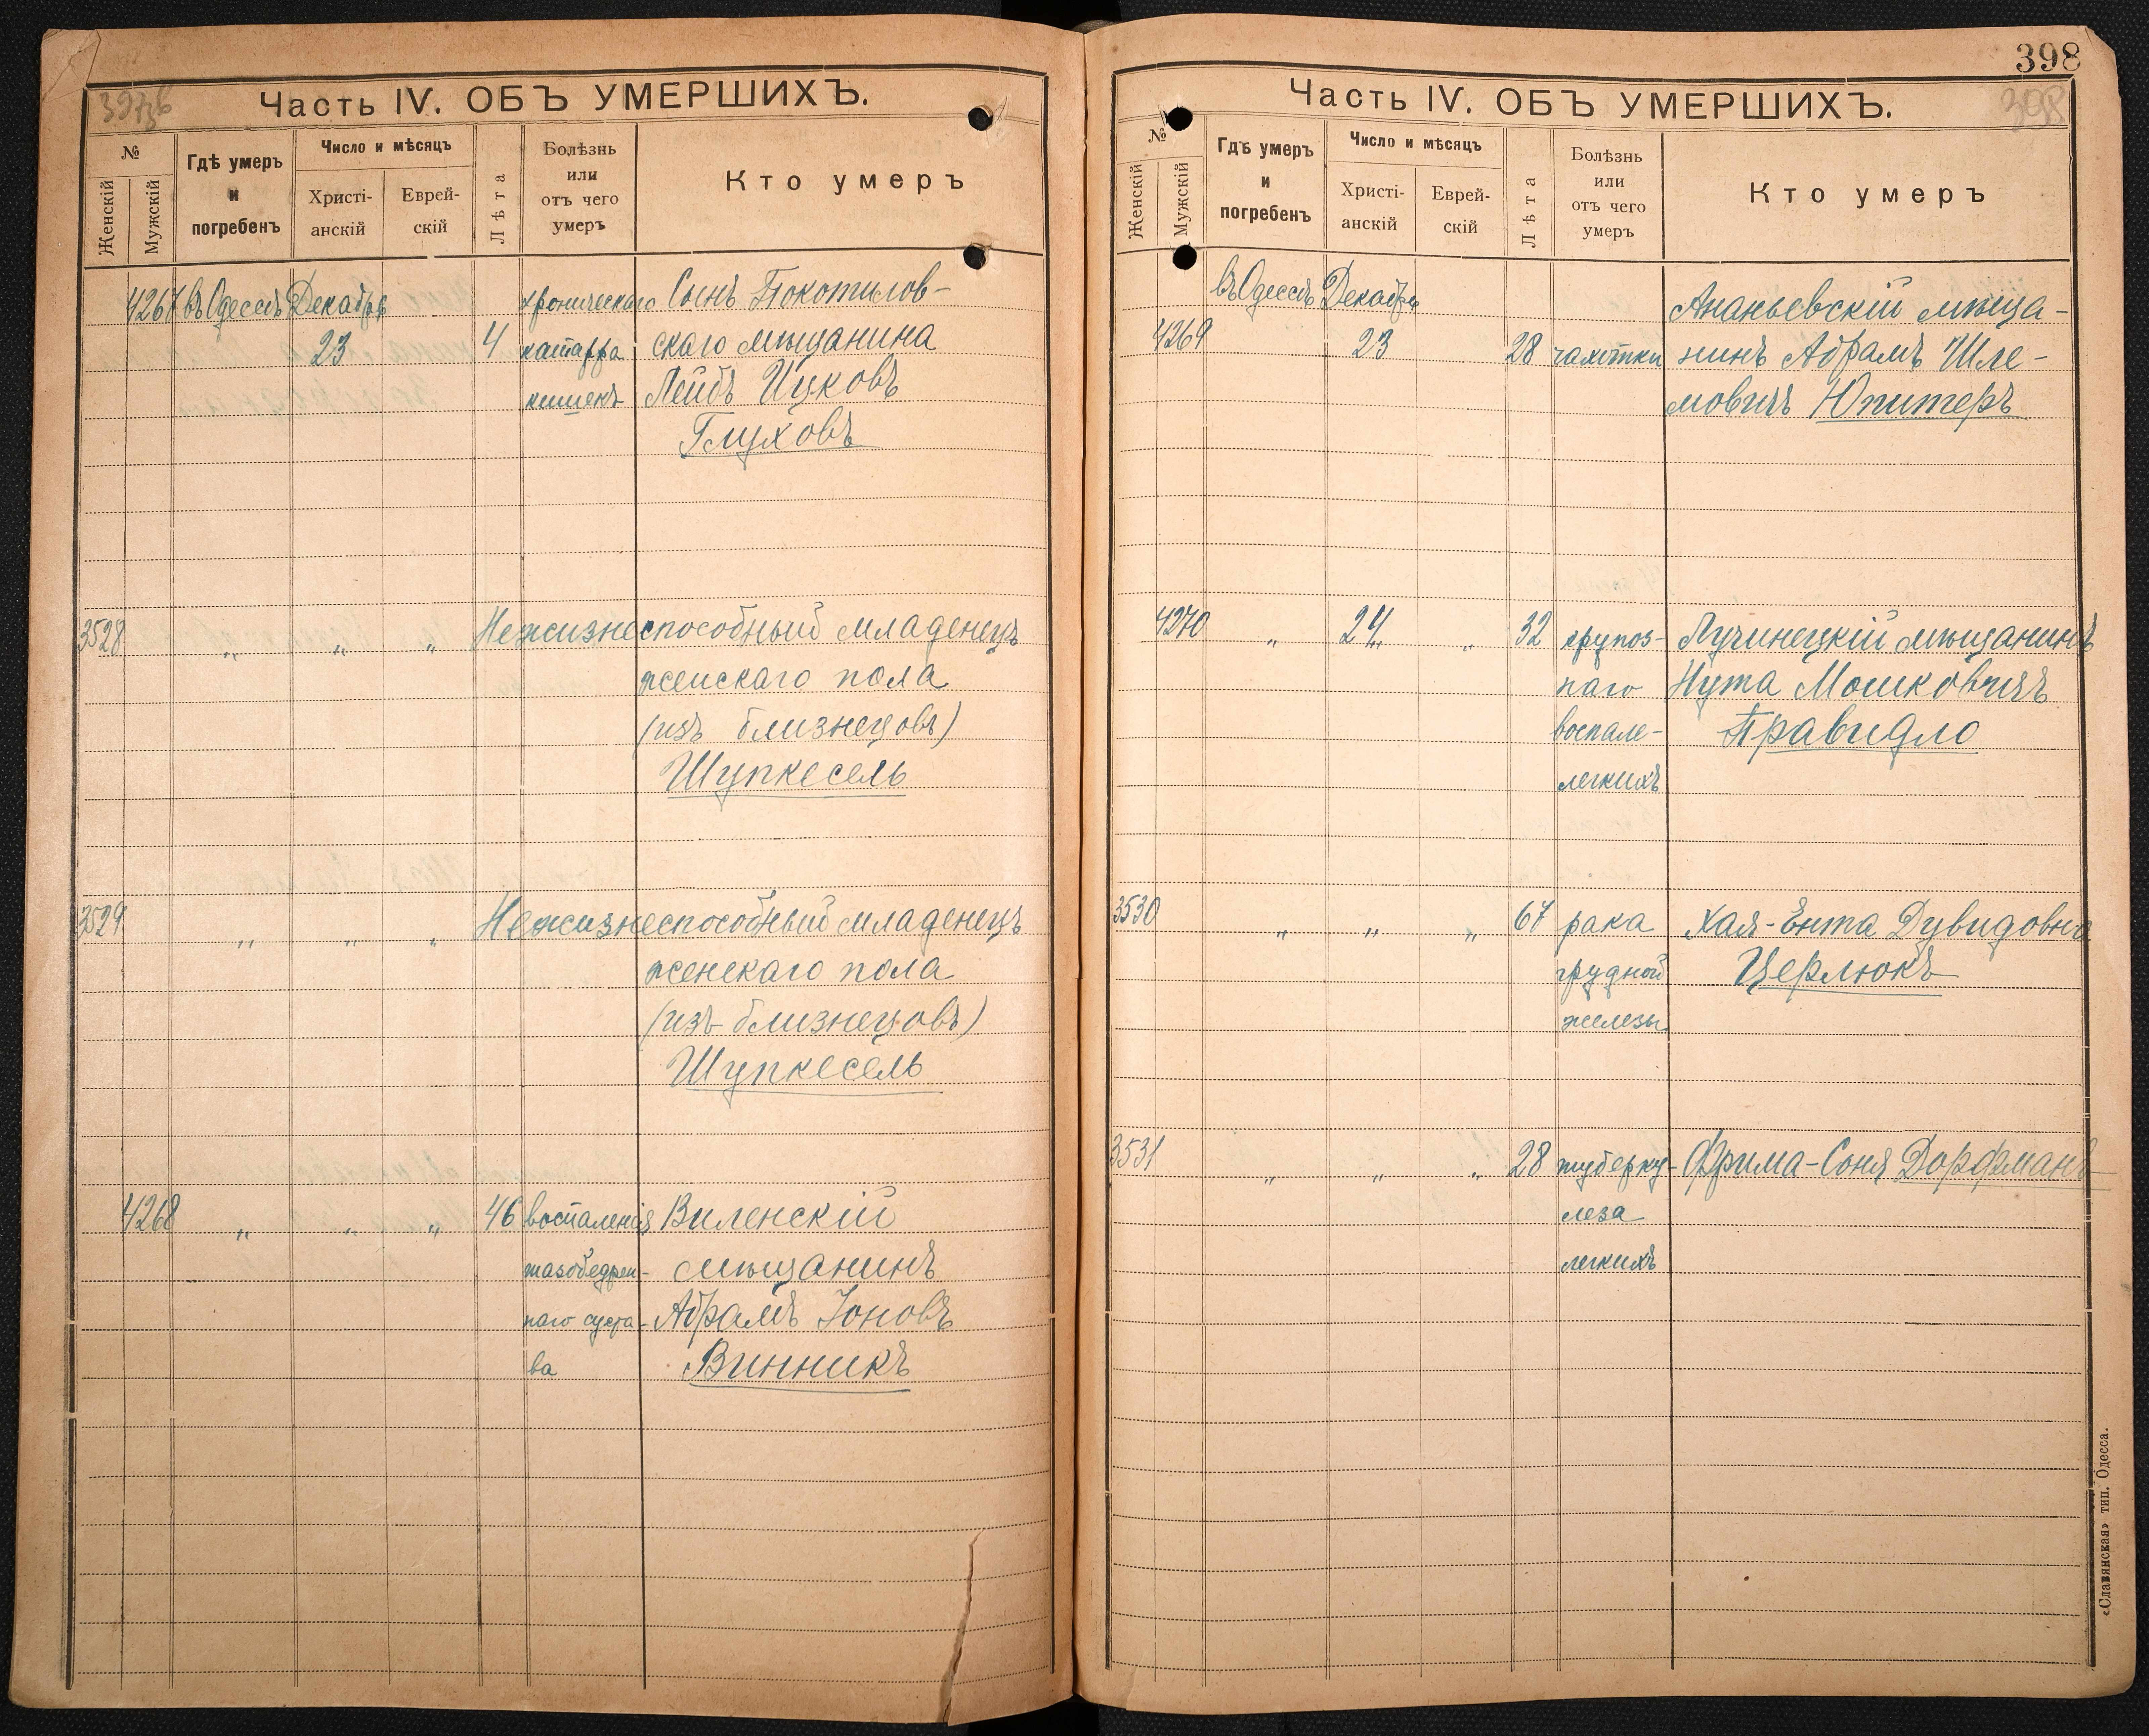 397об
Часть IV. ОБЪ УМЕРШИХЪ.
№
Женскій
Мужскій
Гдѣ умеръ
и
погребенъ
Число и мѣсяцъ
Христі-
анскій
Еврей-
скій
Лѣта
Болѣзнь
или
отъ чего
умеръ
Кто умеръ
4267 въ Одессѣ Декабря хроническаго Сынъ Покотилов-
23 4 катарра скаго мѣщанина
кишекъ Лейбъ Ицковъ
Глуховъ
3528 „ „ „ Нежизнеспособный младенецъ
женскаго пола
(изъ близнецовъ)
Шупкесель
3529 „ „ „ Нежизнеспособный младенецъ
женскаго пола
(изъ близнецовъ)
Шупкесель
4268 „ „ „ 46 воспаленія Виленскій
тазобедрен- мѣщанинъ
наго суста- Абрамъ Іоновъ
ва Винникъ
398
Часть IV. ОБЪ УМЕРШИХЪ.
398
№
Женскій
Мужскій
Гдѣ умеръ
и
погребенъ
Число и мѣсяцъ
Христі-
анскій
Еврей-
скій
Лѣта
Болѣзнь
или
отъ чего
умеръ
Кто умеръ
въ Одессѣ Декабря Ананьевскій мѣща-
4269 23 28 чахотки нинъ Абрамъ Шле-
мовичъ Юпитеръ
4270 „ 24 „ 32 крупоз- Лучинецкій мѣщанинъ
наго Нута Мошковичъ
воспале- Правидло
легкихъ
3530 „ „ „ 67 рака Хая-Ента Дувидовна
грудной Церлюкъ
железы
3531 „ „ „ 28 туберку- Фрима-Соня Дорфманъ
леза
легкихъ
«Славянская» тип. Одесса.